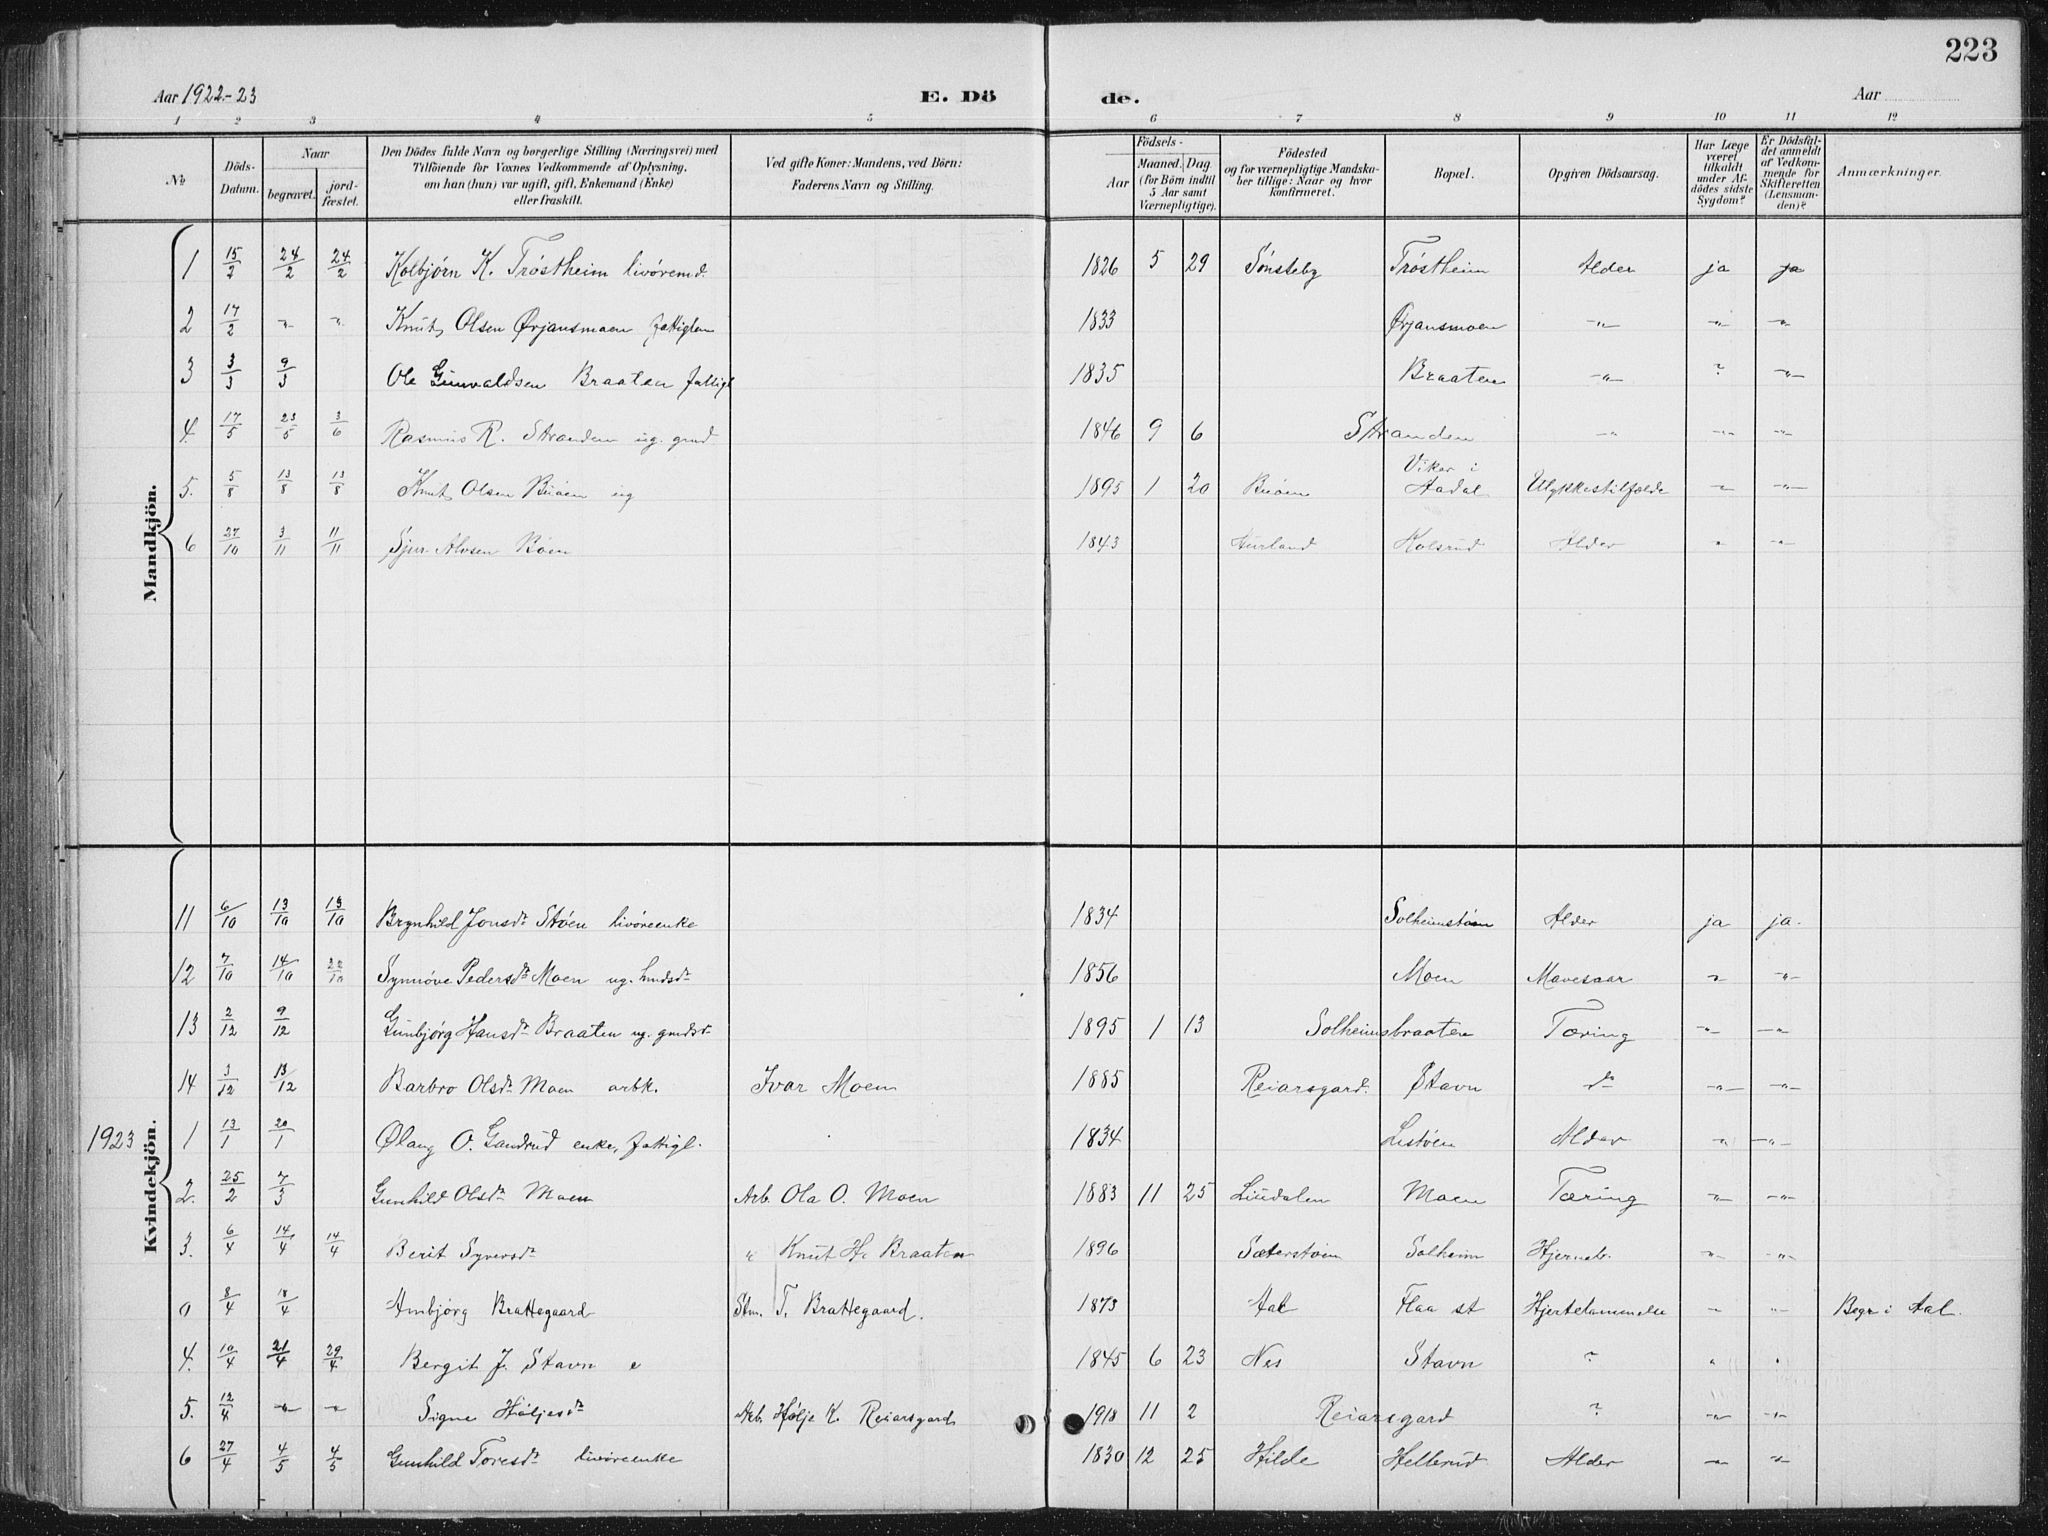 223
Aar 1922-23 E. Dö de. Aar
1 2 3 4 5 6 7 8 9 10 11 12
No Döds-Datum. Naar begravet. jord-fæstet. Den Dödes fulde Navn og borgerlige Stilling (Næringsvei) med Tilföiende for Voxnes Vedkommende af Oplysning, om han (hun) var ugift, gift, Enkemand (Enke) eller fraskilt. Ved gifte Koner: Mandens, ved Börn: Faderens Navn og Stilling. Födsels- Aar Maaned. Dag (for Börn indtil 5 Aar samt Værnepligtige). Födested og for værnepligtige Mandskaber tillige: Naar og hvor konfirmeret. Bopæl. Opgiven Dödsaarsag. Har Læge været tilkaldt under Afdödes sidste Sygdom? Er Dödsfaldet anmeldt af Vedkommende for Skifteretten (Lensmanden)? Anmærkninger.
Mandkjön.
1 15/2 24/2 24/2 Kolbjörn K. Tröstheim livöremd. 1826 5 29 Sönsteby Tröstheim Alder ja ja
2 17/2 -"- -"- Knut Olsen Ørjansmoen fattiglem 1833 Ørjansmoen -"- -"- -"-
3 3/3 9/3 Ole Gunvaldsen Braaten fattigl 1835 Braaten -"- ? -"-
4. 17/5 23/5 3/6 Rasmus R. Stranden ug. gmd 1846 9 6 Stranden -"- -"- -"-
5. 5/8 13/8 13/8 Knut Olsen Buöen ug 1895 1 20 Buöen Viker i Aadal Ulykkestilfælde -"- -"-
6 27/10 3/11 11/11 Sjur Alvsen Böen 1843 Kolsrud Alder " -"-
Kvindekjön.
11 6/10 13/10 13/10 Brynhild Jonsdr Støen livöreenke 1834 Solheimstöen Alder ja ja.
12 7/10 14/10 22/10 Synnöve Pedersdr Moen ug. 1856 Moen Mavesaar " -"-
13 2/12 9/12 Gunbjørg Hansdr Braaten ug. gmdsdr 1895 1 13 Solheimsbraaten Tæring -"- -"-
14 3/12 13/12 Barbro Olsdr Moen arbk. Ivar Moen 1885 Reiarsgard. Stavn do -"- -"-
1923 1 13/1 20/1 Ølaug O. Gandrud enke, fattigl. 1834 Listöen Alder " -"-
2. 25/2 7/3 Gunhild Olsdr Moen Arb. Ola O. Moen 1883 11 25 Liudalen Moen Tæring -"- -"-
3. 6/4 14/4 14/4 Berit Syversdr " Knut H. Braaten 1896 Sæterstöen Solheim Hjerneb. -"- -"-
0 8/4 18/4 Ambjörg Brattegaard Stm. T. Brattegaard. 1873 Aal Flaa st Hjertelammelse " -"- Begr i Aal.
4. 10/4 21/4 29/4 Bergit J. Stavn e 1845 6 23 Nes Stavn ? " "
5. 12/4 -"- -"- Signe Höljesdr Arb. Hølje K. Reiarsgard 1918 11 2 Reiarsgard ? -"- -"-
6 27/4 4/5 4/5 Gunhild Toresdr livöreenke 1830 12 25 Hilde Hellerud Alder -"- -"-